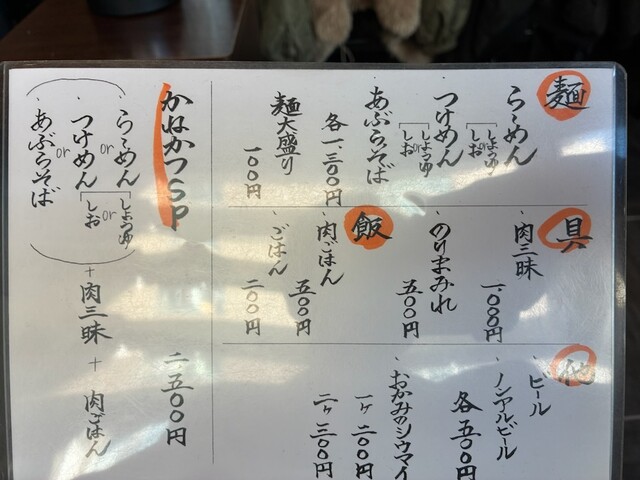 麺
らーめん
しょうゆ
or
しお
つけめん
しょうゆ
or
しお
あぶらそば
各一、三〇〇円
麺大盛り
一〇〇円
具
肉三昧
一、〇〇〇円
のりまみれ
五〇〇円
飯
肉ごはん
五〇〇円
ごはん
二〇〇円
他
ビール
ノンアルビール
各五〇〇円
おかみのシウマイ
一ヶ二〇〇円
二ヶ三〇〇円
かねかつSP
らーめん
or
つけめん
しょうゆ
or
しお
or
あぶらそば
+
肉三昧
+
肉ごはん
二、五〇〇円